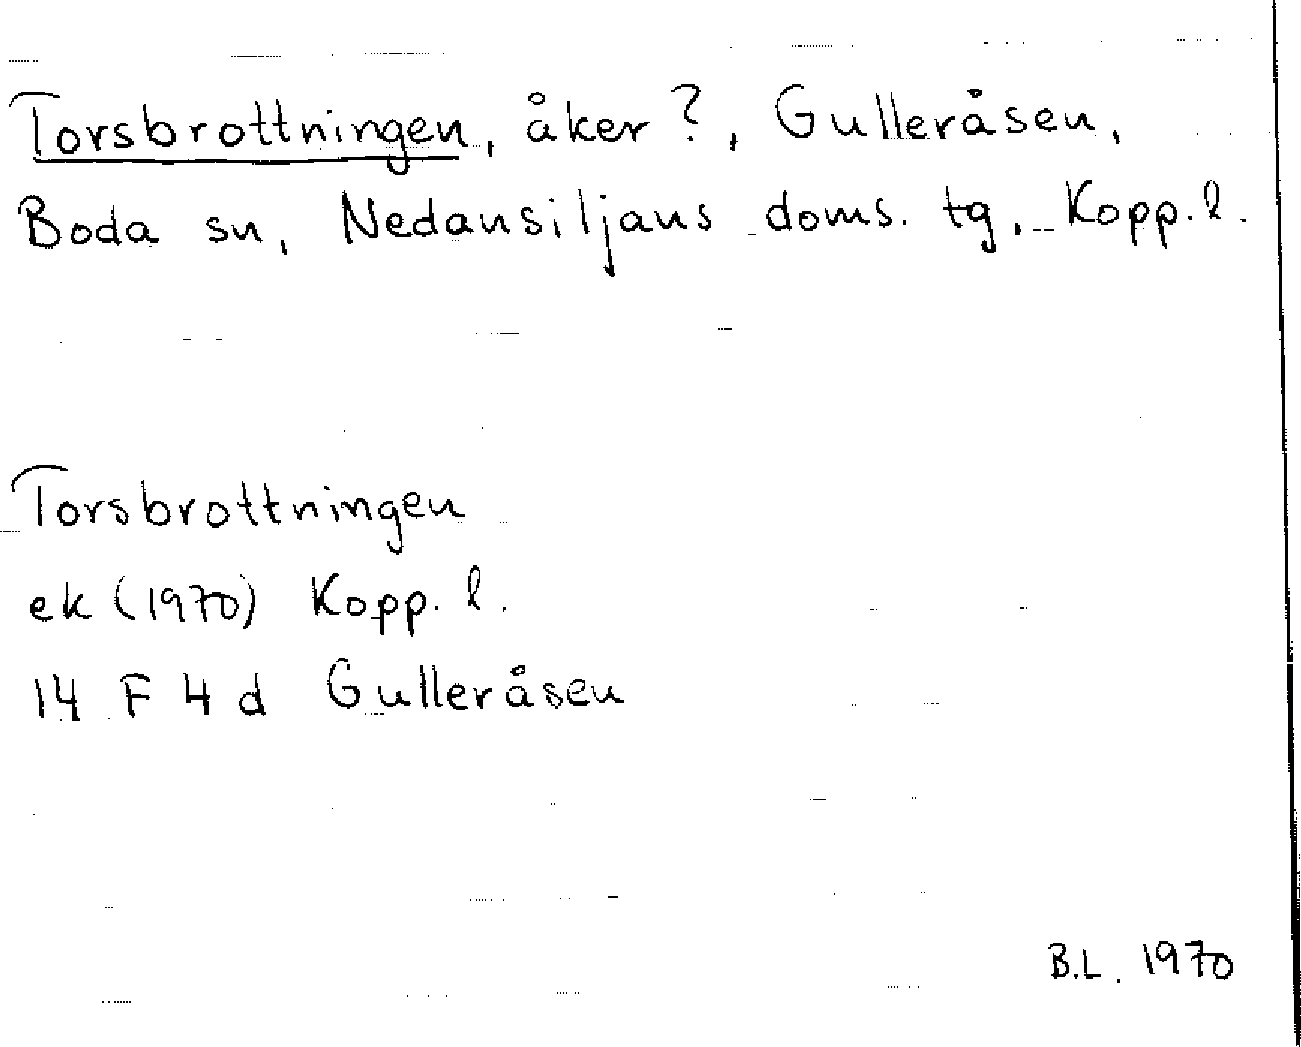 Torsbrottningen, åker?, Gulleråsen,
Boda sn, Nedansiljans doms. tg, Kopp. l.
Torsbrottningen
ek (1970) Kopp. l.
14 F 4 d Gulleråsen
B.L. 1970